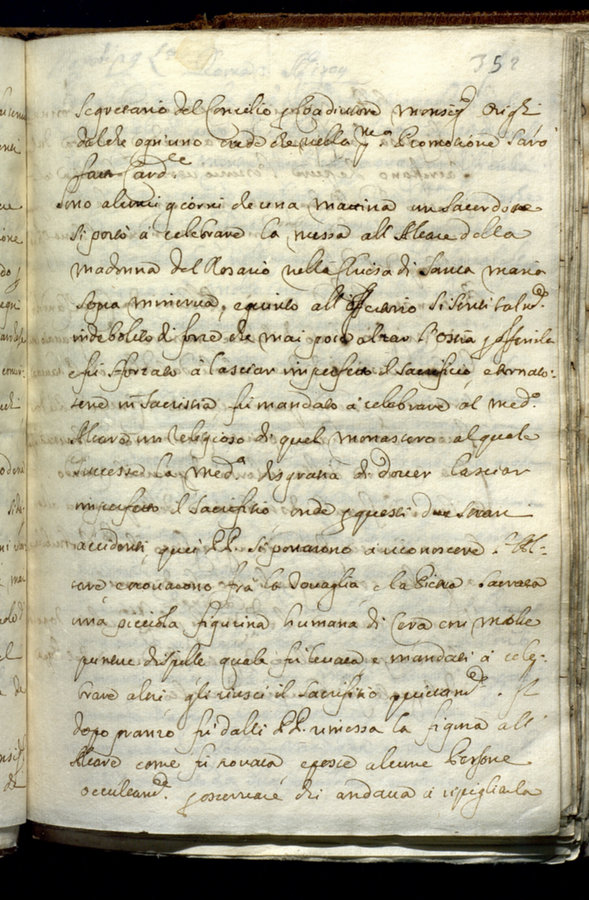 352
Segretario del Concilio p Coadiutore Monsig.r Orighi
dal che ogn'uno crede che nella p.ma Promotione sarà
fatto Card.le
Sono alcuni giorni che una mattina un Sacerdote
si portò à celebrare la messa all'Altare della
Madonna del Rosario nella Chiesa di Santa Maria
Sopra Minerva, e giunto all'offertorio si sentì talm.te
indebolito di forze che mai potè alzar l'Ostia p offerirla
e fu sforzato à lasciar imperfetto il Sacrificio, e tornato-
sene in Sacristia fu mandato à celebrare al med.o
Altare un Religioso di quel Monastero al quale
successe la med.a disgratia di dover lasciar
imperfetto il Sacrifitio onde p questi due strani
accidenti quei PP. si portarono à riconoscere l'Al-
tare e trovarono frà la Tovaglia e la Pietra sacrata
una picciola figurina humana di Cera con molte
punture di spille quale fu levata e mandati à cele-
brare altri gli riuscì il Sacrifitio quietam.te. Il
dopo pranzo fù dalli PP. rimessa la figura all'
Altare come fu trovata e poste alcune Persone
occultam.te p osservare chi andava à ripigliarla